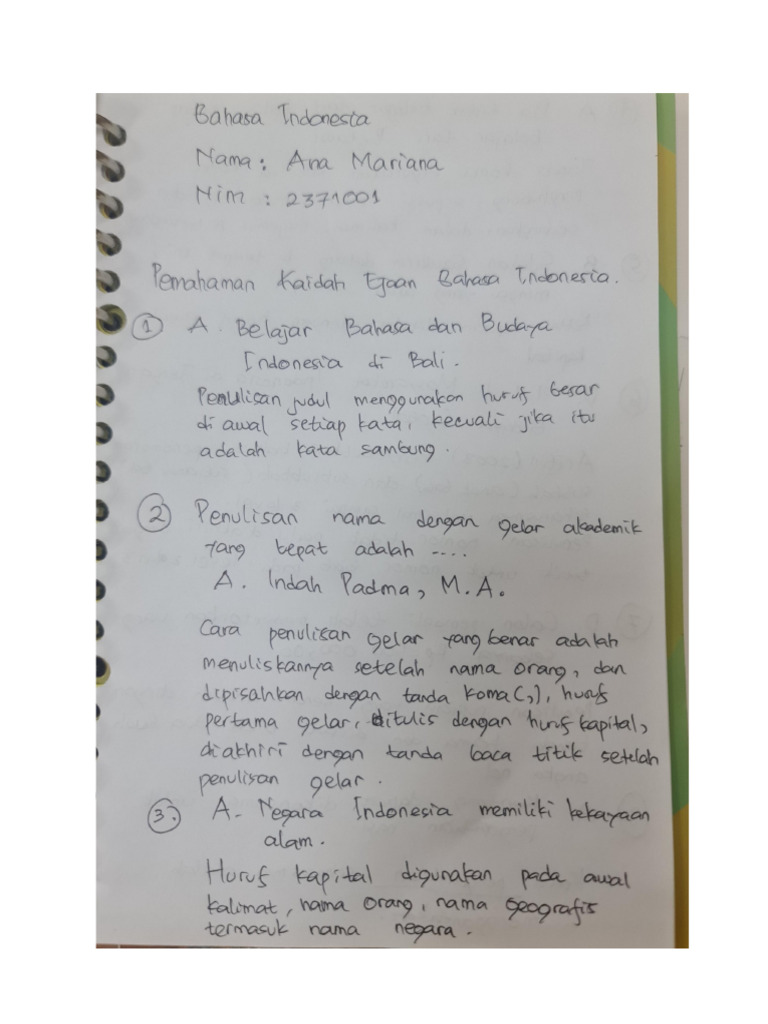 Bahasa Indonesia
Nama : Ana Mariana
Nim : 2371001
Pemahaman Kaidah Ejaan Bahasa Indonesia.
1 A. Belajar Bahasa dan Budaya
Indonesia di Bali.
Penulisan judul menggunakan huruf besar
di awal setiap kata, kecuali jika itu
adalah kata sambung.
2 Penulisan nama dengan gelar akademik
yang tepat adalah ....
A. Indah Padma, M.A.
Cara penulisan gelar yang benar adalah
menuliskannya setelah nama orang, dan
dipisahkan dengan tanda koma (,), huruf
pertama gelar, ditulis dengan huruf kapital,
diakhiri dengan tanda baca titik setelah
penulisan gelar.
3. A. Negara Indonesia memiliki kekayaan
alam.
Huruf kapital digunakan pada awal
kalimat, nama orang, nama geografis
termasuk nama negara.